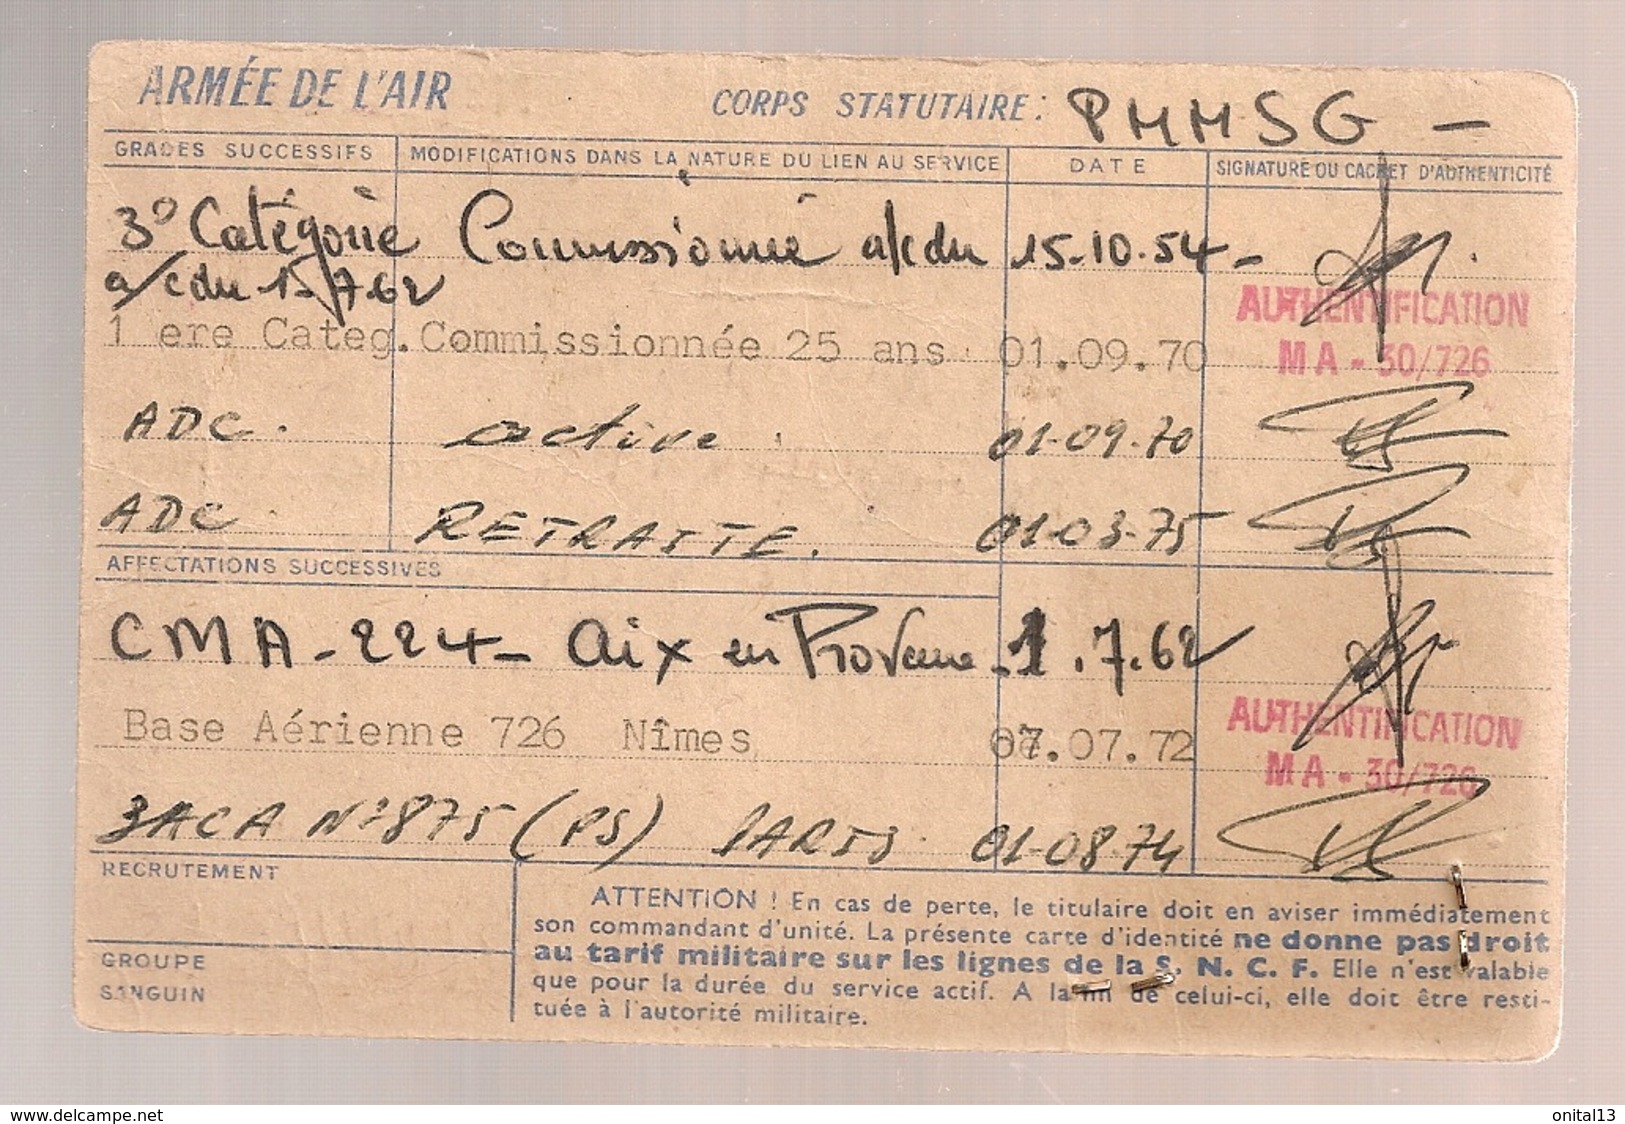 ARMÉE DE L'AIR
CORPS STATUTAIRE: PMMSG -
GRADES SUCCESSIFS MODIFICATIONS DANS LA NATURE DU LIEN AU SERVICE DATE SIGNATURE OU CACHET D'AUTHENTICITÉ
3° Catégorie Commissionnée a/c du 15-10.54-
a/c du 15/7.62
AUTHENTIFICATION
1 ere Categ. Commissionnée 25 ans 01.09.70
MA - 30/726
ADC. active. 01-09.70
ADC RETRAITE. 01-03-75
AFFECTATIONS SUCCESSIVES
CMA-224- Aix en Provence - 1.7.62
Base Aérienne 726 Nîmes 07.07.72
AUTHENTIFICATION
MA - 30/726
BACA N° 875 (PS) PARIS 01-08-74
RECRUTEMENT
GROUPE
SANGUIN
ATTENTION ! En cas de perte, le titulaire doit en aviser immédiatement
son commandant d'unité. La présente carte d'identité ne donne pas droit
au tarif militaire sur les lignes de la S. N. C. F. Elle n'est valable
que pour la durée du service actif. A la fin de celui-ci, elle doit être resti-
tuée à l'autorité militaire.
www.delcampe.net
onital13